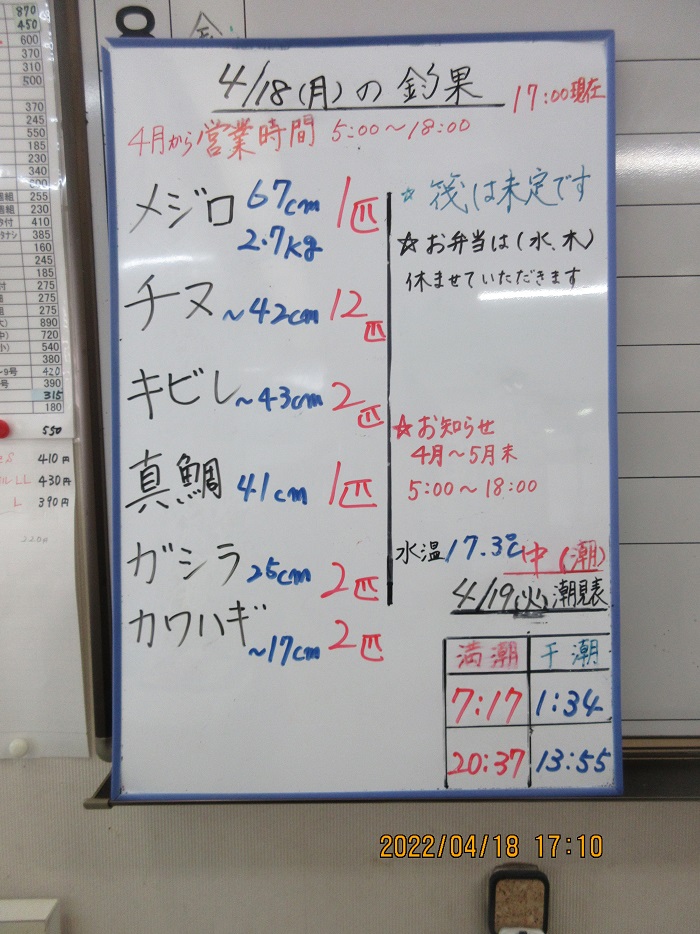 870
450
600
370
310
500
370
245
550
185
230
340
600
255
230
410
385
160
245
185
275
275
275
890
720
540
380
420
390
315
180
550
410円
LL 430円
L 390円
4/18(月)の釣果
17:00現在
4月から営業時間 5:00〜18:00
メジロ 67cm 1匹
2.7kg
チヌ 〜42cm 12匹
キビレ 〜43cm 2匹
真鯛 41cm 1匹
ガシラ 25cm 2匹
カワハギ 〜17cm 2匹
☆ 筏は未定です
☆お弁当は(水、木)
休ませていただきます
☆お知らせ
4月〜5月末
5:00〜18:00
水温17.3℃ 中(潮)
4/19(火)潮見表
満潮 干潮
7:17 1:34
20:37 13:55
2022/04/18 17:10